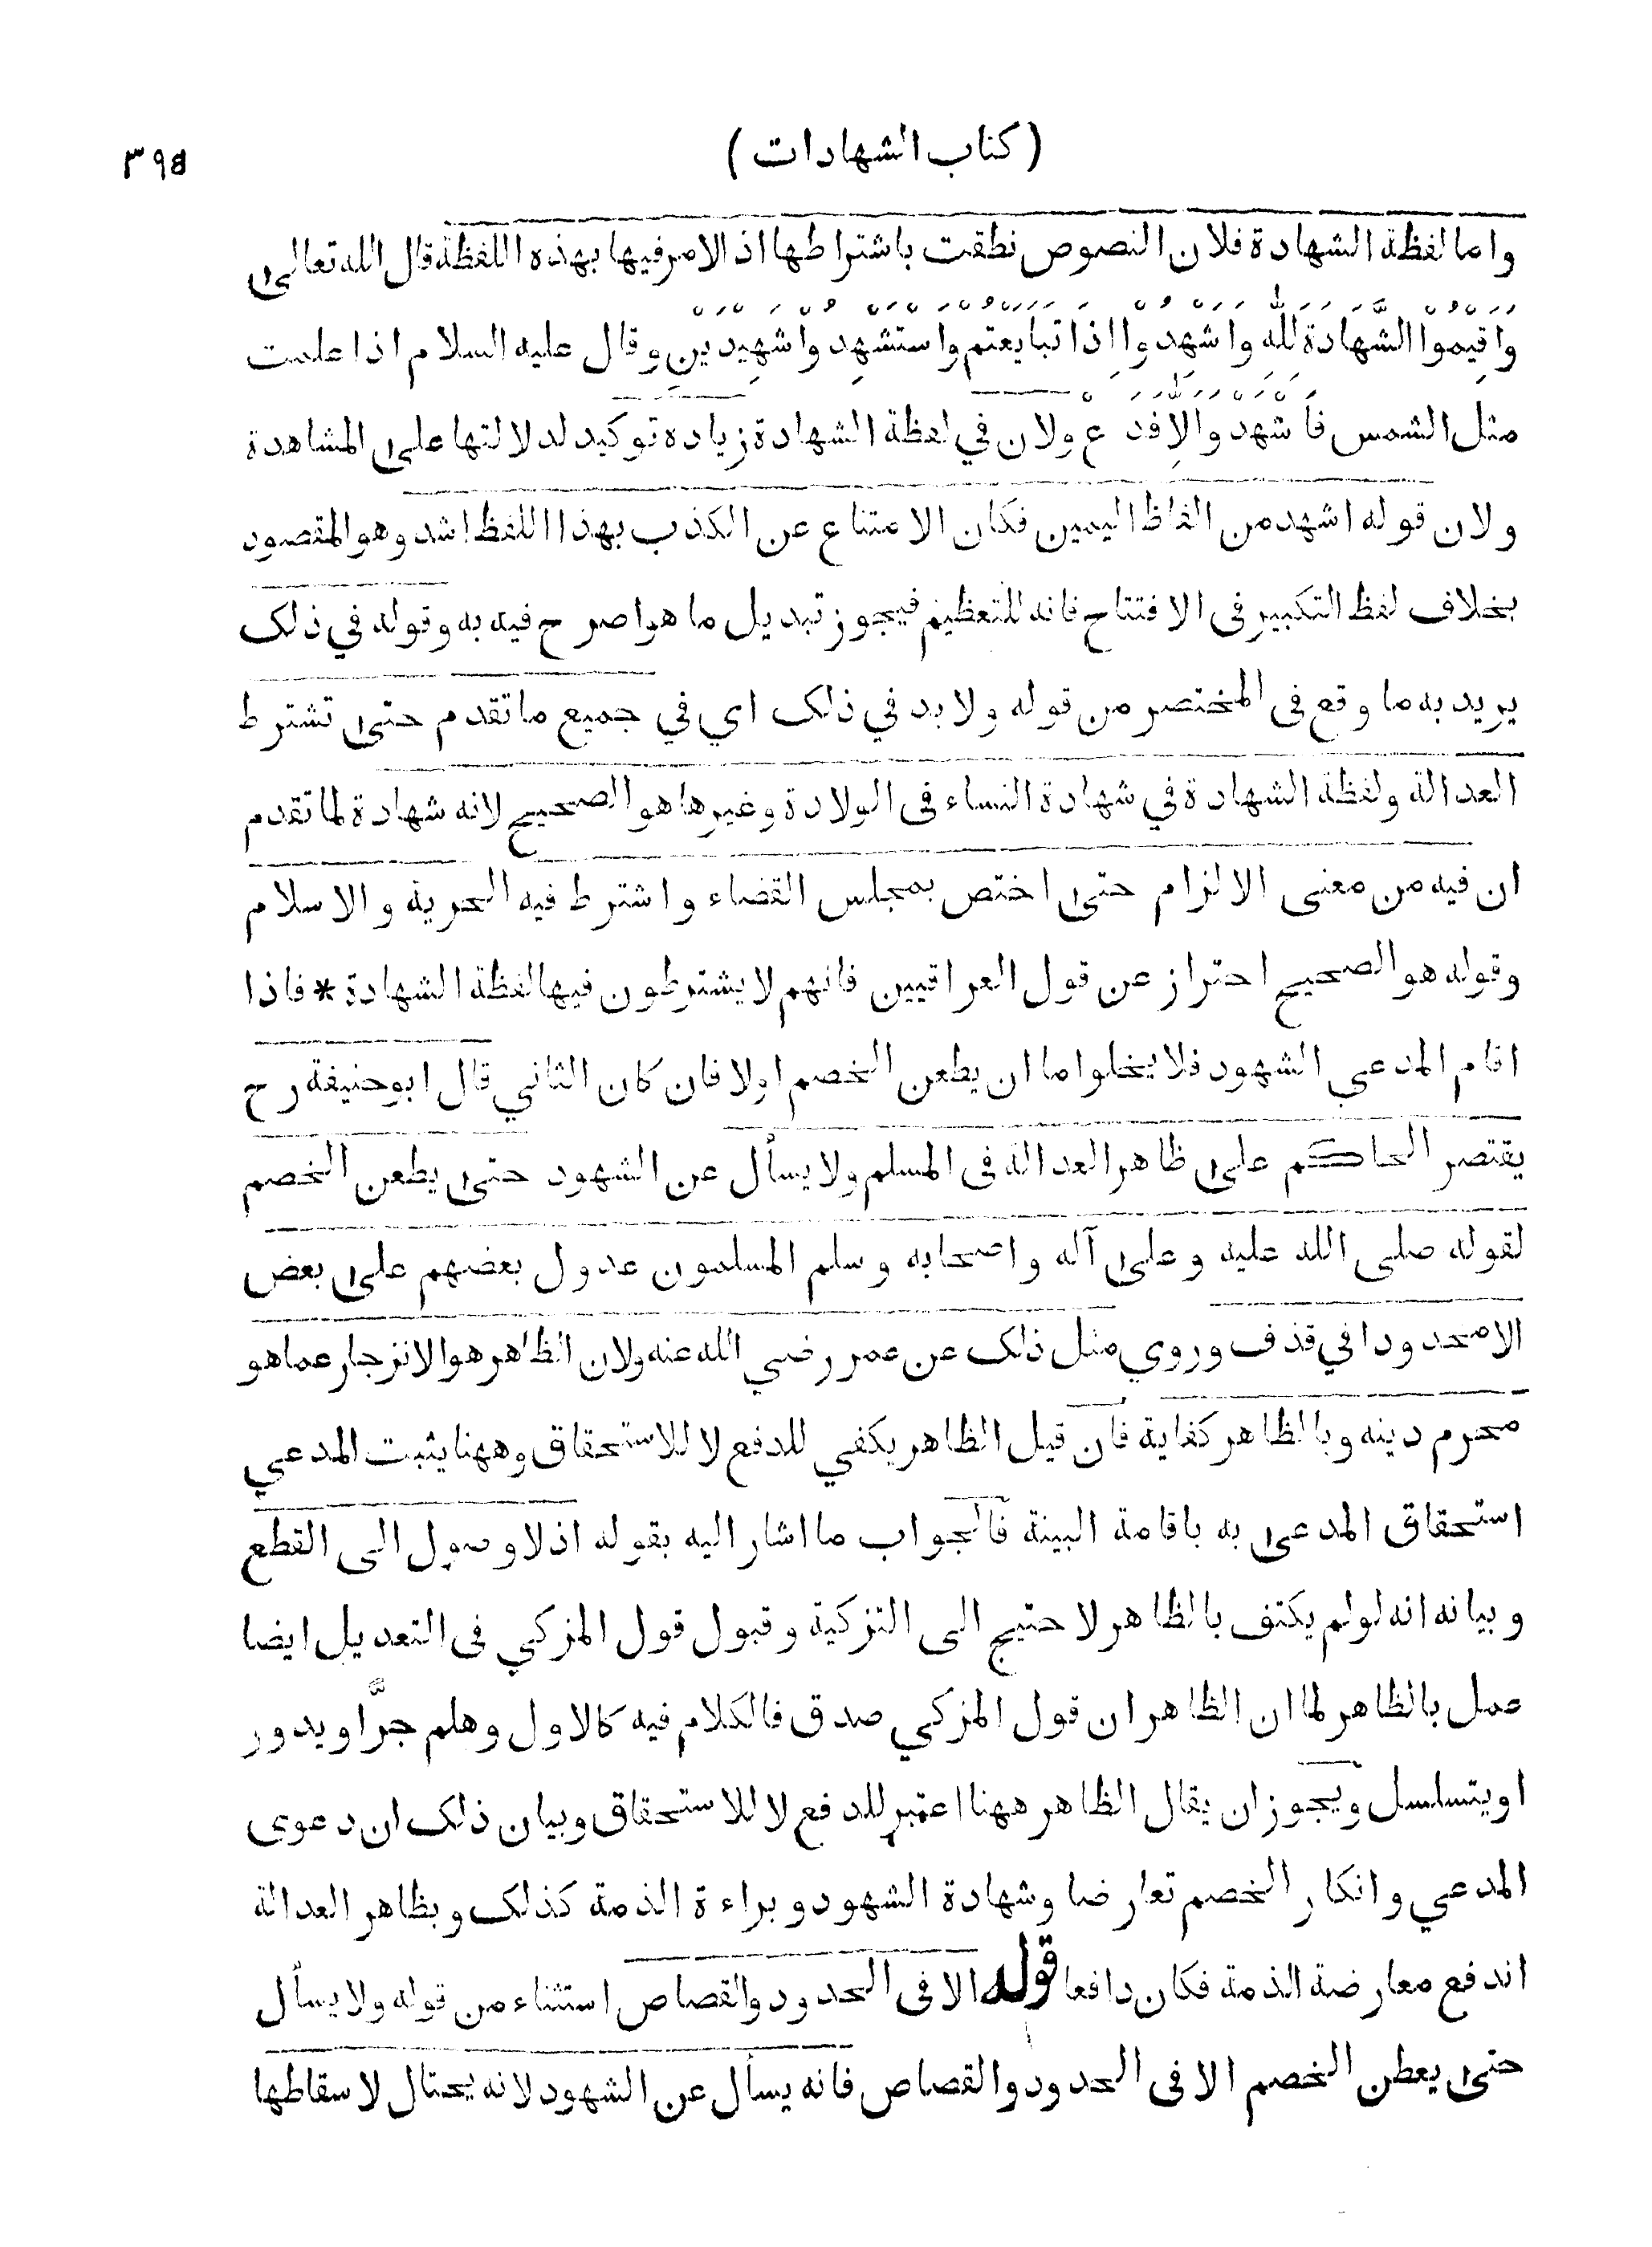 (كتاب الشهادات) ٣٩٥
واما لفظة الشهادة فلان النصوص نطقت باشتراطها اذ الامر فيها بهذه اللفظة قال الله تعالى
وَاَقِيْمُوْا الشَّهَادَةَ لِلّٰهِ وَاَشْهِدُوْا اِذَا تَبَايَعْتُمْ وَاسْتَشْهِدُوْا شَهِيْدَيْنِ وقال عليه السلام اذا علمت
مثل الشمس فَاشْهَدْ وَاِلَّا فَدَعْ ولان في لفظة الشهادة زيادة توكيد لدلالتها على المشاهدة
ولان قوله اشهد من الفاظ اليمين فكان الامتناع عن الكذب بهذا اللفظ اشد وهو المقصود
بخلاف لفظ التكبير فى الافتتاح فانه للتعظيم فيجوز تبديل ما هو اصرح فيه به وقوله في ذلك
يريد به ما وقع فى المختصر من قوله ولابد في ذلك اي في جميع ما تقدم حتى تشترط
العدالة ولفظة الشهادة في شهادة النساء فى الولادة وغيرها هو الصحيح لانه شهادة لما تقدم
ان فيه من معنى الالزام حتى اختص بمجلس القضاء واشترط فيه الحرية والاسلام
وقوله هو الصحيح احتراز عن قول العراقيين فانهم لا يشترطون فيها لفظة الشهادة * فاذا
اقام المدعي الشهود فلا يخلوا ما ان يطعن الخصم اولا فان كان الثاني قال ابوحنيفة رح
يقتصر الحاكم على ظاهر العدالة فى المسلم ولا يسأل عن الشهود حتى يطعن الخصم
لقوله صلى الله عليه وعلى آله واصحابه وسلم المسلمون عدول بعضهم على بعض
الا محدودا في قذف وروي مثل ذلك عن عمر رضي الله عنه ولان الظاهر هو الانزجار عما هو
محرم دينه وبالظاهر كفاية فان قيل الظاهر يكفي للدفع لا للاستحقاق وههنا يثبت المدعي
استحقاق المدعى به باقامة البينة فالجواب ما اشار اليه بقوله اذ لا وصول الى القطع
وبيانه انه لو لم يكتف بالظاهر لاحتيج الى التزكية وقبول قول المزكي فى التعديل ايضا
عمل بالظاهر لما ان الظاهر ان قول المزكي صدق فالكلام فيه كالاول وهلم جرَّا ويدور
او يتسلسل ويجوز ان يقال الظاهر ههنا اعتبر للدفع لا للاستحقاق وبيان ذلك ان دعوى
المدعي وانكار الخصم تعارضا وشهادة الشهود وبراءة الذمة كذلك وبظاهر العدالة
اندفع معارضة الذمة فكان دافعا قوله الا فى الحدود والقصاص استثناء من قوله ولا يسأل
حتى يعطن الخصم الا فى الحدود والقصاص فانه يسأل عن الشهود لانه يحتال لاسقاطها